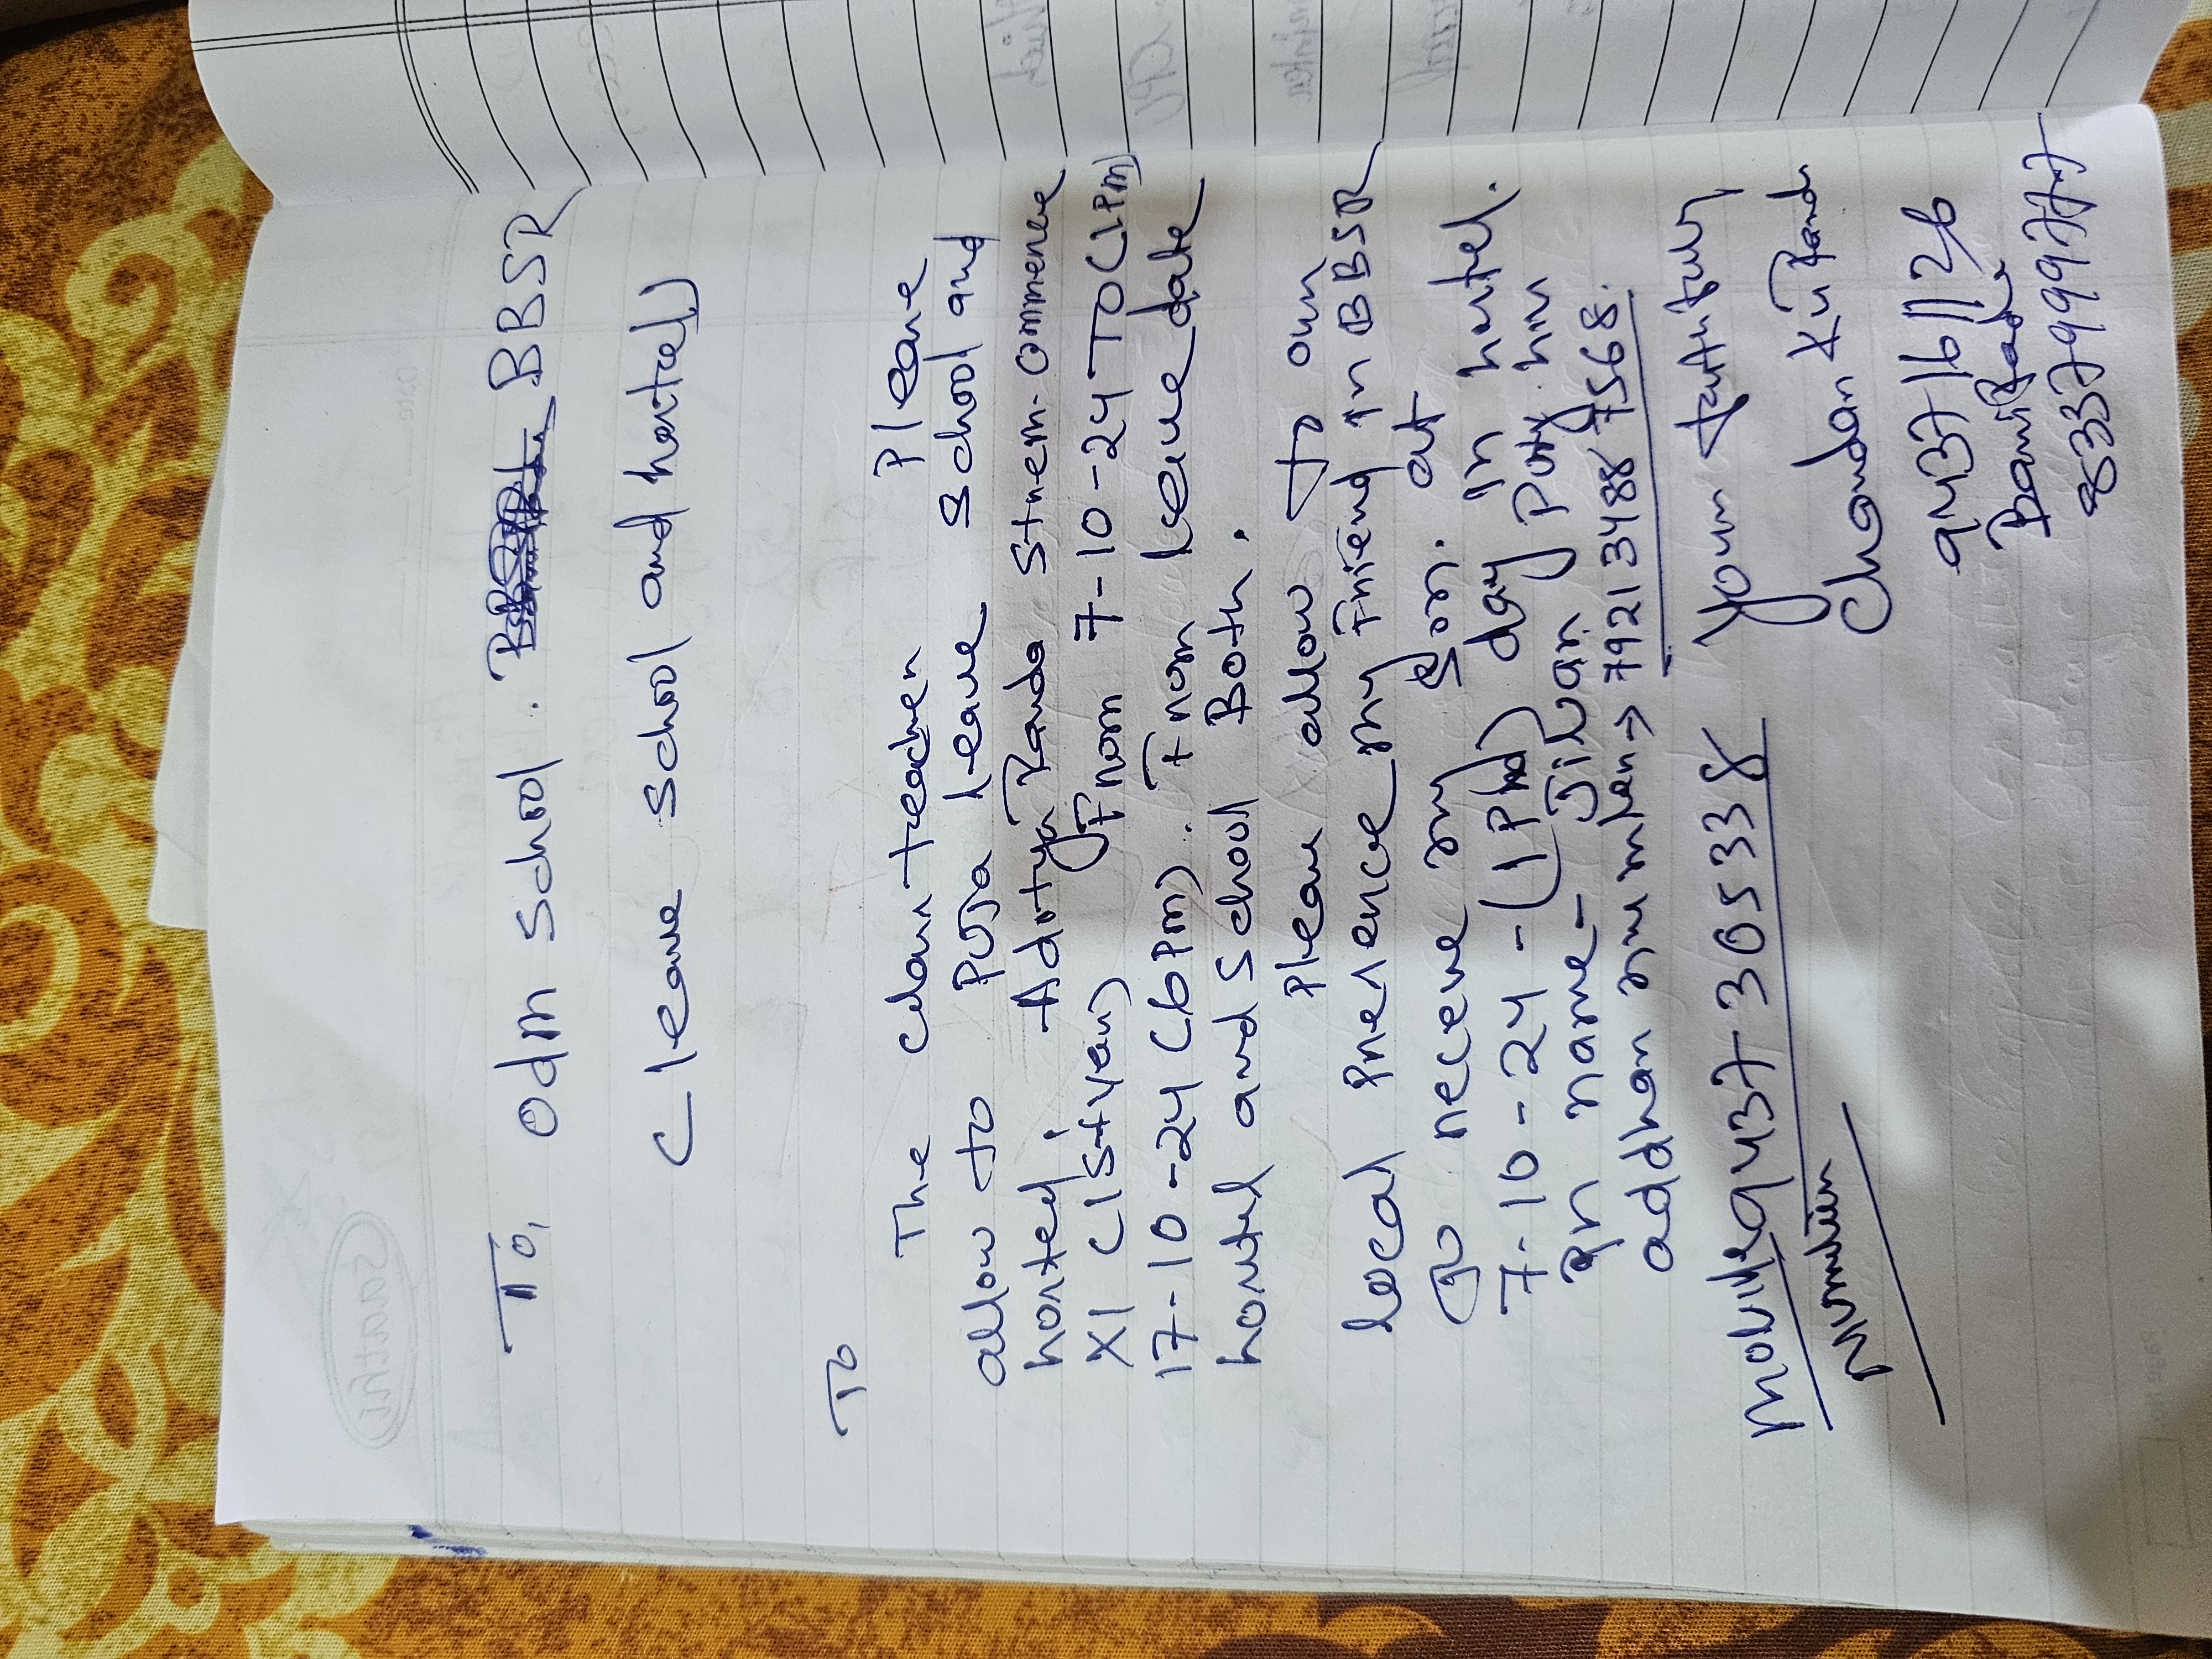 To, Odm School. BBSR
(leave School and hostel)
To
The class teacher Please
allow to Puja leave School and
hostel. Aditya Panda Strem-Commerce
XI (1st year) From 7-10-24 TO (1Pm)
17-10-24 (6Pm). From leave date
hostel and School Both.
Please allow to own
local Prerence my Friend in BBSR
Go receve my Son. at
7-10-24-(1Pm) day in hostel.
name- Jiban
addhar number → 7921 3488 7568.
Mobile 9437305338 Your faithfully
Number
Chandan Ku Panda
9437161126
8337999777